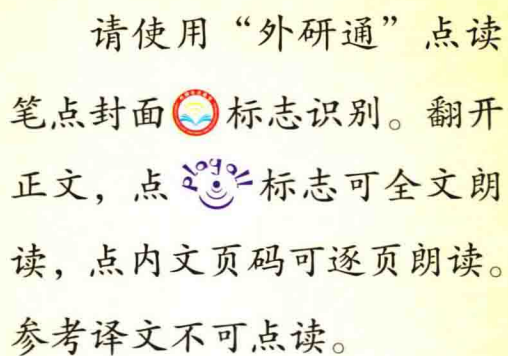 请使用“外研通”点读
笔点封面标志识别。翻开
正文，点 Playall 标志可全文朗
读，点内文页码可逐页朗读。
参考译文不可点读。